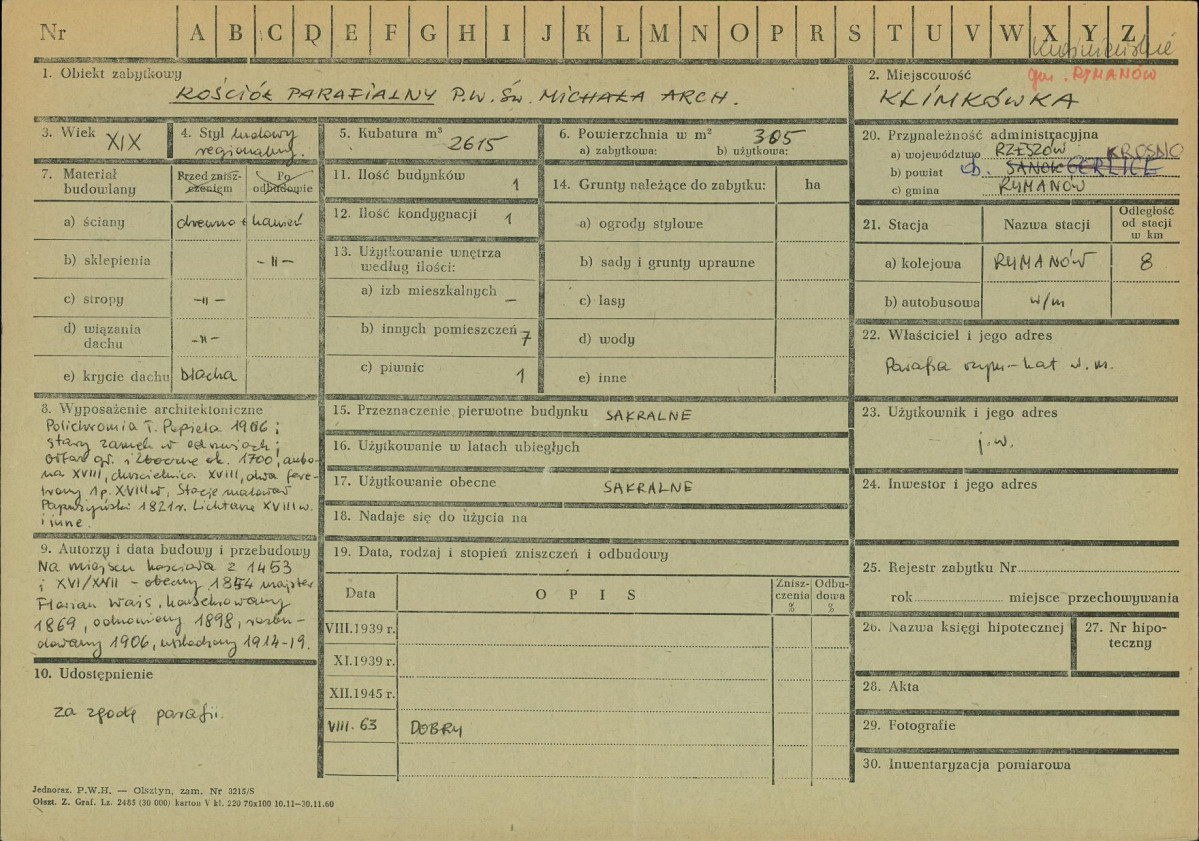 Nr A B C D E F G H I J K L M N O P R S T U V W X Y Z
gm. RYMANÓW
1. Obiekt zabytkowy
KOŚCIÓŁ PARAFIALNY P.W. ŚW. MICHAŁA ARCH.
2. Miejscowość
KLIMKÓWKA
3. Wiek XIX
4. Styl ludowy
regionalny.
5. Kubatura m³ 2615
6. Powierzchnia w m² 305
a) zabytkowa: b) użytkowa:
7. Materiał
budowlany
Przed znisz-
czeniem
Po
odbudowie
a) ściany drewno + kamień
b) sklepienia -"-
c) stropy -"-
d) wiązania
dachu -"-
e) krycie dachu blacha
8. Wyposażenie architektoniczne
Polichromia T. Popiela 1906;
stary zamek w odrzwiach;
ołtarz gł. i boczne ok. 1700, ambo-
na XVIII, chrzcielnica XVIII, dwa fere-
trony 1 p. XVIII w, Stacje malował
1821 r. Lichtarze XVIII w.
i inne.
9. Autorzy i data budowy i przebudowy
Na miejscu kościoła z 1453
i XVI/XVII - obecny 1854 majster
Florian Wais, konsekrowany
1869, odnowiony 1898, rozbu-
dowany 1906, uszkodzony 1914-19.
10. Udostępnienie
za zgodą parafii.
11. Ilość budynków 1
12. Ilość kondygnacji 1
13. Użytkowanie wnętrza
według ilości:
a) izb mieszkalnych —
b) innych pomieszczeń 7
c) piwnic 1
14. Grunty należące do zabytku: ha
a) ogrody stylowe
b) sady i grunty uprawne
c) lasy
d) wody
e) inne
15. Przeznaczenie pierwotne budynku SAKRALNE
16. Użytkowanie w latach ubiegłych
17. Użytkowanie obecne SAKRALNE
18. Nadaje się do użycia na
19. Data, rodzaj i stopień zniszczeń i odbudowy
Data OPIS Znisz-
czenia
%
Odbu-
dowa
%
VIII.1939 r.
XI.1939 r.
XII.1945 r.
VIII. 63 DOBRY
20. Przynależność administracyjna
a) województwo RZESZÓW KROSNO
b) powiat SANOK GORLICE
c) gmina RYMANÓW
21. Stacja Nazwa stacji Odległość
od stacji
w km
a) kolejowa RYMANÓW 8
b) autobusowa w/m
22. Właściciel i jego adres
Parafia rzym-kat w. m.
23. Użytkownik i jego adres
j.w.
24. Inwestor i jego adres
25. Rejestr zabytku Nr
rok miejsce przechowywania
26. Nazwa księgi hipotecznej
27. Nr hipo-
teczny
28. Akta
29. Fotografie
30. Inwentaryzacja pomiarowa
Jednoraz. P.W.H. — Olsztyn, zam. Nr 3215/S
Olszt. Z. Graf. Lz. 2485 (30 000) karton V kl. 220 70x100 10.11—30.11.60